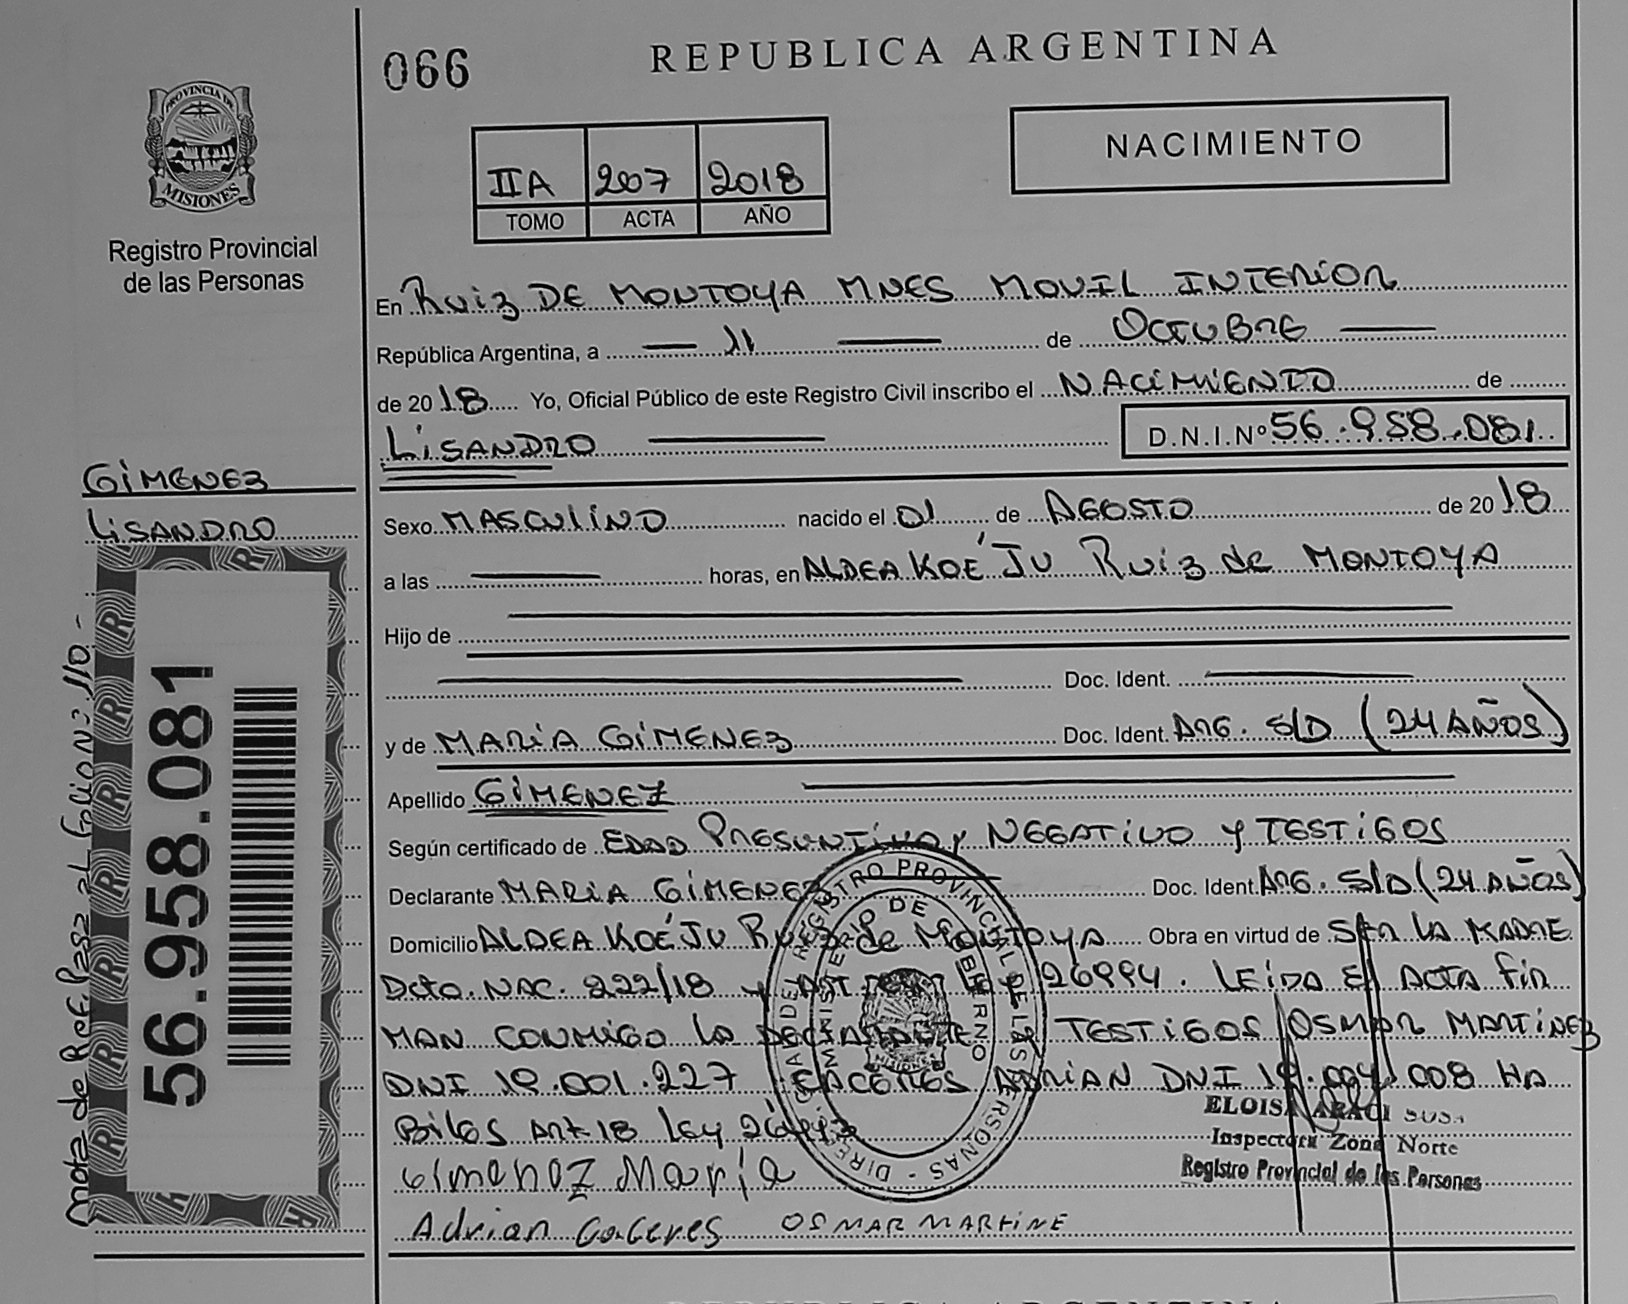 066
REPUBLICA ARGENTINA
PROVINCIA DE
MISIONES
Registro Provincial
de las Personas
IIA 207 2018
TOMO ACTA AÑO
NACIMIENTO
En Ruiz DE MONTOYA MNES MOVIL INTERIOR
República Argentina, a 11 de OCTUBRE
de 2018 Yo, Oficial Público de este Registro Civil inscribo el NACIMIENTO de
LISANDRO D.N.I.Nº 56.958.081
GIMENEZ
LISANDRO
Sexo MASCULINO nacido el 01 de AGOSTO de 2018
a las horas, en ALDEA KOE'JU Ruiz de MONTOYA
Hijo de
Doc. Ident.
y de MARIA GIMENEZ Doc. Ident. ARG. S/D (24 AÑOS)
Apellido GIMENEZ
Según certificado de EDAD PRESUNTIVA y NEGATIVO y TESTIGOS
Declarante MARIA GIMENEZ Doc. Ident. ARG. S/D (24 AÑOS)
Domicilio ALDEA KOÉJU Ruiz de MONTOYA Obra en virtud de SER LA MADRE
Dcto. NAC. 222/18 y 26994. LEIDA EL ACTA FIR
MAN CONMIGO LA DECLARANTE TESTIGOS OSMAR MARTINEZ
DNI 19.001.227 CACERES ADRIAN DNI 19. 008 HA
BILES ART 18 Ley
Gimenez María
Adrian Caceres OSMAR MARTINE
ELOISA
Inspectora Zona Norte
Registro Provincial de las Personas
DIRE REGISTRO PROVINCIAL DE LAS PERSONAS
MINISTERIO DE GOBIERNO
56.958.081
Nota de Ref. Pasa al folio Nº 110.-